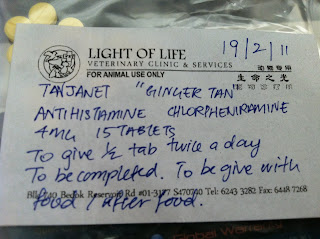 LIGHT OF LIFE
VETERINARY CLINIC & SERVICES
FOR ANIMAL USE ONLY
19/2/11
生命之光
TANJANET "GINGER TAN"
ANTIHISTAMINE CHLORPHENIRAMINE
4MG 15 TABLETS
To give ½ tab twice a day
To be completed. To be give with
Reservoir Rd #01-3177 S470740 Tel: 6243 3282 Fax: 6448 7268
food / after food.